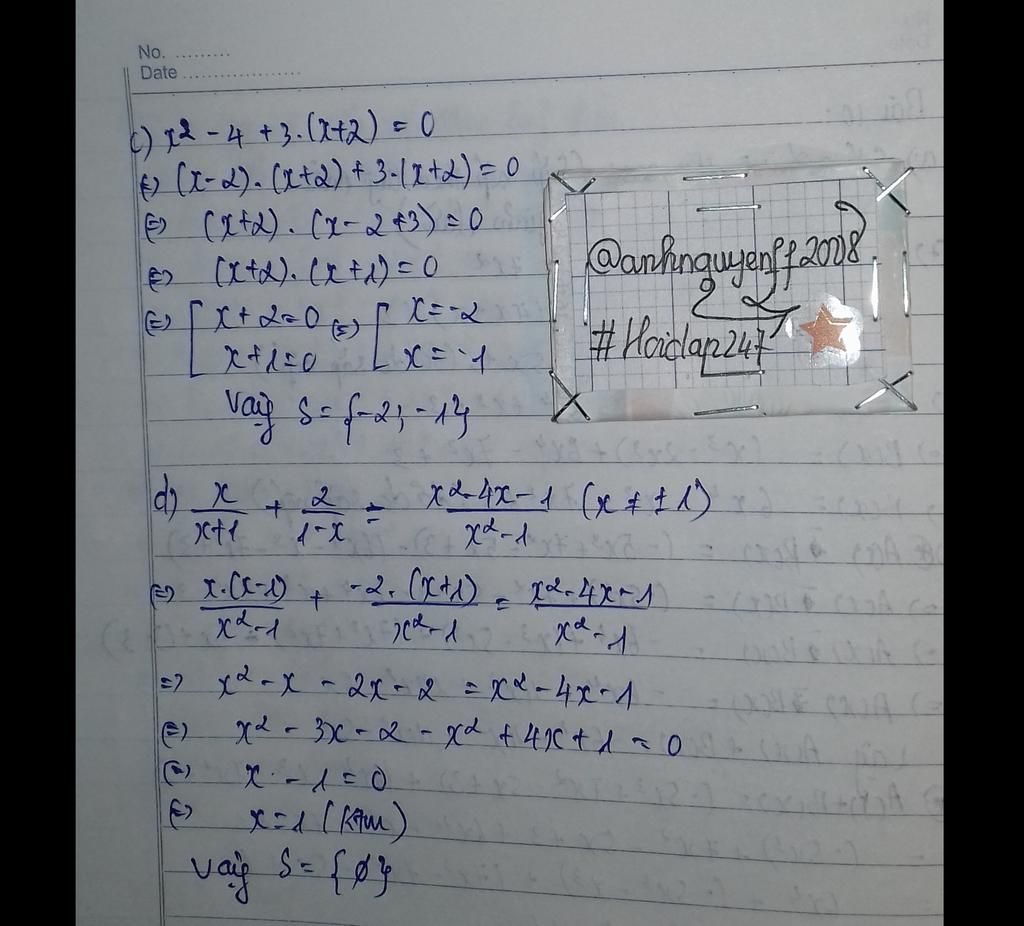 No. .........
Date ....................
c) x² - 4 + 3.(x+2) = 0
⇔ (x-2).(x+2) + 3.(x+2) = 0
⇔ (x+2).(x-2+3) = 0
⇔ (x+2).(x+1) = 0
⇔ [ x+2=0 ⇔ [ x=-2
x+1=0 x=-1
Vậy S={-2;-1}
@anhnguyenff2008
#Hoidap247
d) x/(x+1) + 2/(1-x) = (x²-4x-1)/(x²-1) (x ≠ ±1)
⇔ x.(x-1)/(x²-1) + -2.(x+1)/(x²-1) = (x²-4x-1)/(x²-1)
=> x² - x - 2x - 2 = x² - 4x - 1
⇔ x² - 3x - 2 - x² + 4x + 1 = 0
⇔ x - 1 = 0
⇔ x=1 (Ktm)
Vậy S={∅}